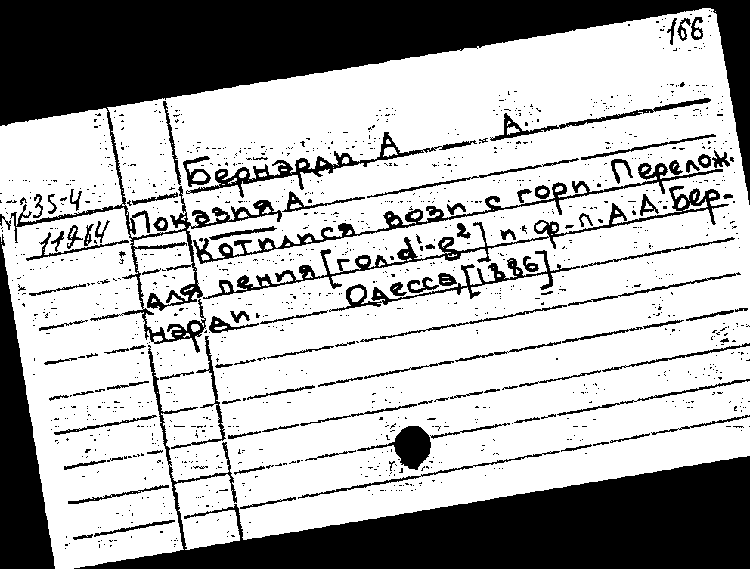 166
Бернарди, А А.
М235-4
11964
Показия, А.
Котился возп с горп. Перелож.
для пения [гол. d¹-g²] п. ф-п. А. А. Бер-
нарди. Одесса, [1886].